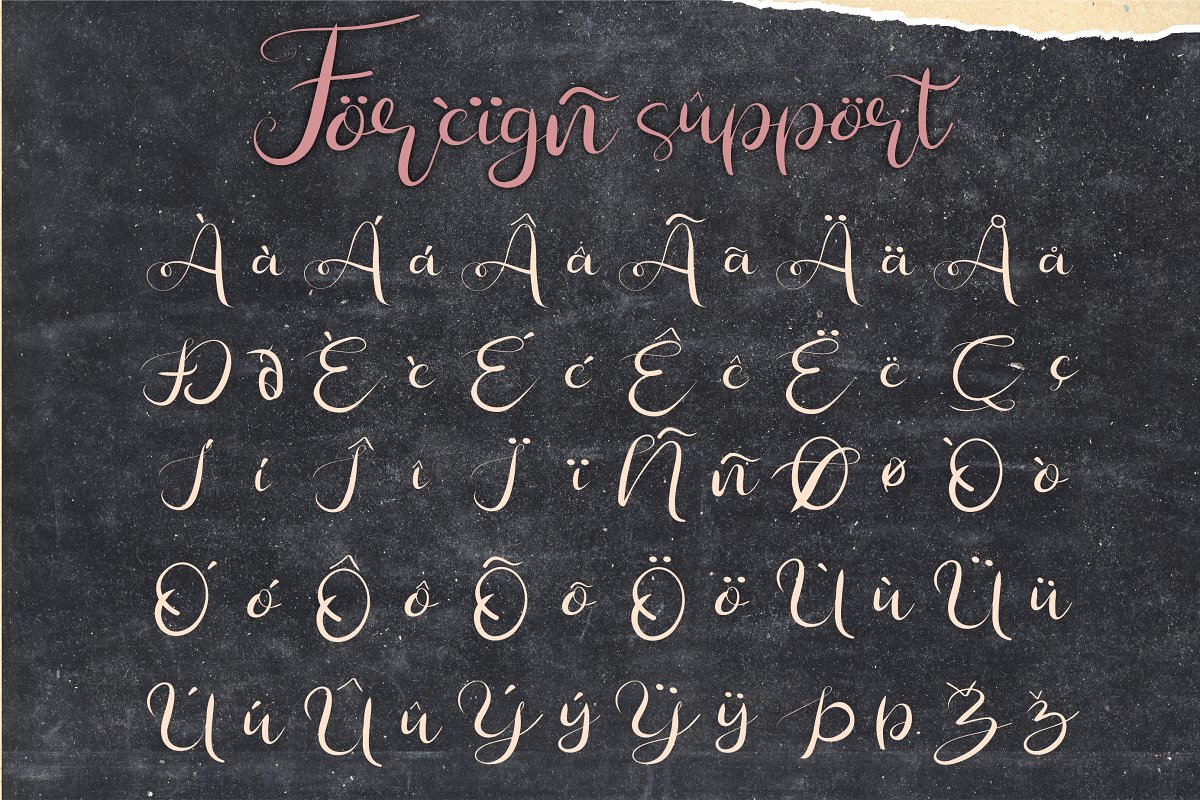 Förèïgñ sûppört
À à Á á Â â Ã ã Ä ä Å å
Đ ð È è É é Ê ê Ë ë Ç ç
Í í Î î Ï ï Ñ ñ Ø ø Ò ò
Ó ó Ô ô Õ õ Ö ö Ù ù Ü ü
Ú ú Û û Ý ý Ÿ ÿ Þ þ Ž ž